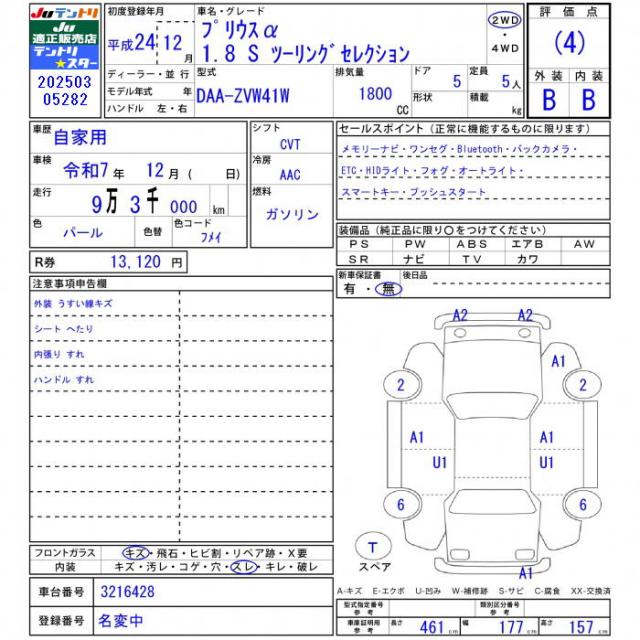 Juテントリ
Ju
適正販売店
テントリ
★スター
202503
05282
初度登録年月
平成24年12月
ディーラー・並行
モデル年式 年
ハンドル 左・右
車名・グレード
プリウスα
1.8 S ツーリングセレクション
2WD
・
4WD
型式
DAA-ZVW41W
排気量
1800
CC
ドア
5
形状
定員
5人
積載
kg
評価点
(4)
外装 内装
B B
車歴
自家用
車検
令和7年 12月 ( 日)
走行
9万 3千 000 km
色
パール
色替
色コード
フメイ
R券
13,120 円
シフト
CVT
冷房
AAC
燃料
ガソリン
セールスポイント (正常に機能するものに限ります)
メモリーナビ・ワンセグ・Bluetooth・バックカメラ・
ETC・HIDライト・フォグ・オートライト・
スマートキー・プッシュスタート
装備品 (純正品に限り○をつけてください)
PS PW ABS エアB AW
SR ナビ TV カワ
新車保証書
有・無
後日品
注意事項申告欄
外装 うすい線キズ
シート へたり
内張り すれ
ハンドル すれ
A2 A2
A1
2 2
A1 A1
U1 U1
6 6
A1
T
スペア
フロントガラス
キズ・飛石・ヒビ割・リペア跡・X要
内装
キズ・汚レ・コゲ・穴・スレ・キレ・破レ
A-キズ E-エクボ U-凹み W-補修跡 S-サビ C-腐食 XX-交換済
車台番号
3216428
登録番号
名変中
型式指定番号
参考
類別区分番号
参考
車庫証明用
参考
長さ 461 cm 幅 177 cm 高さ 157 cm